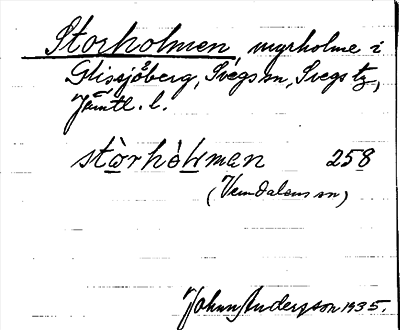 Storholmen, myrholme i
Glissjöberg, Svegs sn, Svegs tg,
Jämtl. l.
stòrhòḷman 258
(Vemdalens sn)
John Andersson 1935.